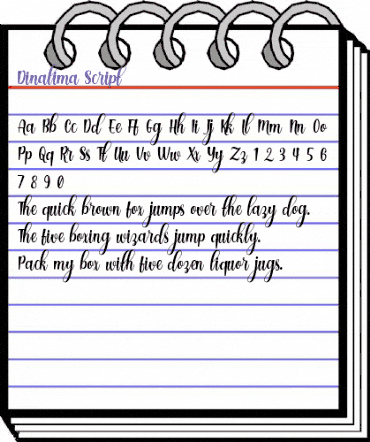 Dinalima Script
Aa Bb Cc Dd Ee Ff Gg Hh Ii Jj Kk Ll Mm Nn Oo
Pp Qq Rr Ss Tt Uu Vv Ww Xx Yy Zz 1 2 3 4 5 6
7 8 9 0
The quick brown fox jumps over the lazy dog.
The five boxing wizards jump quickly.
Pack my box with five dozen liquor jugs.